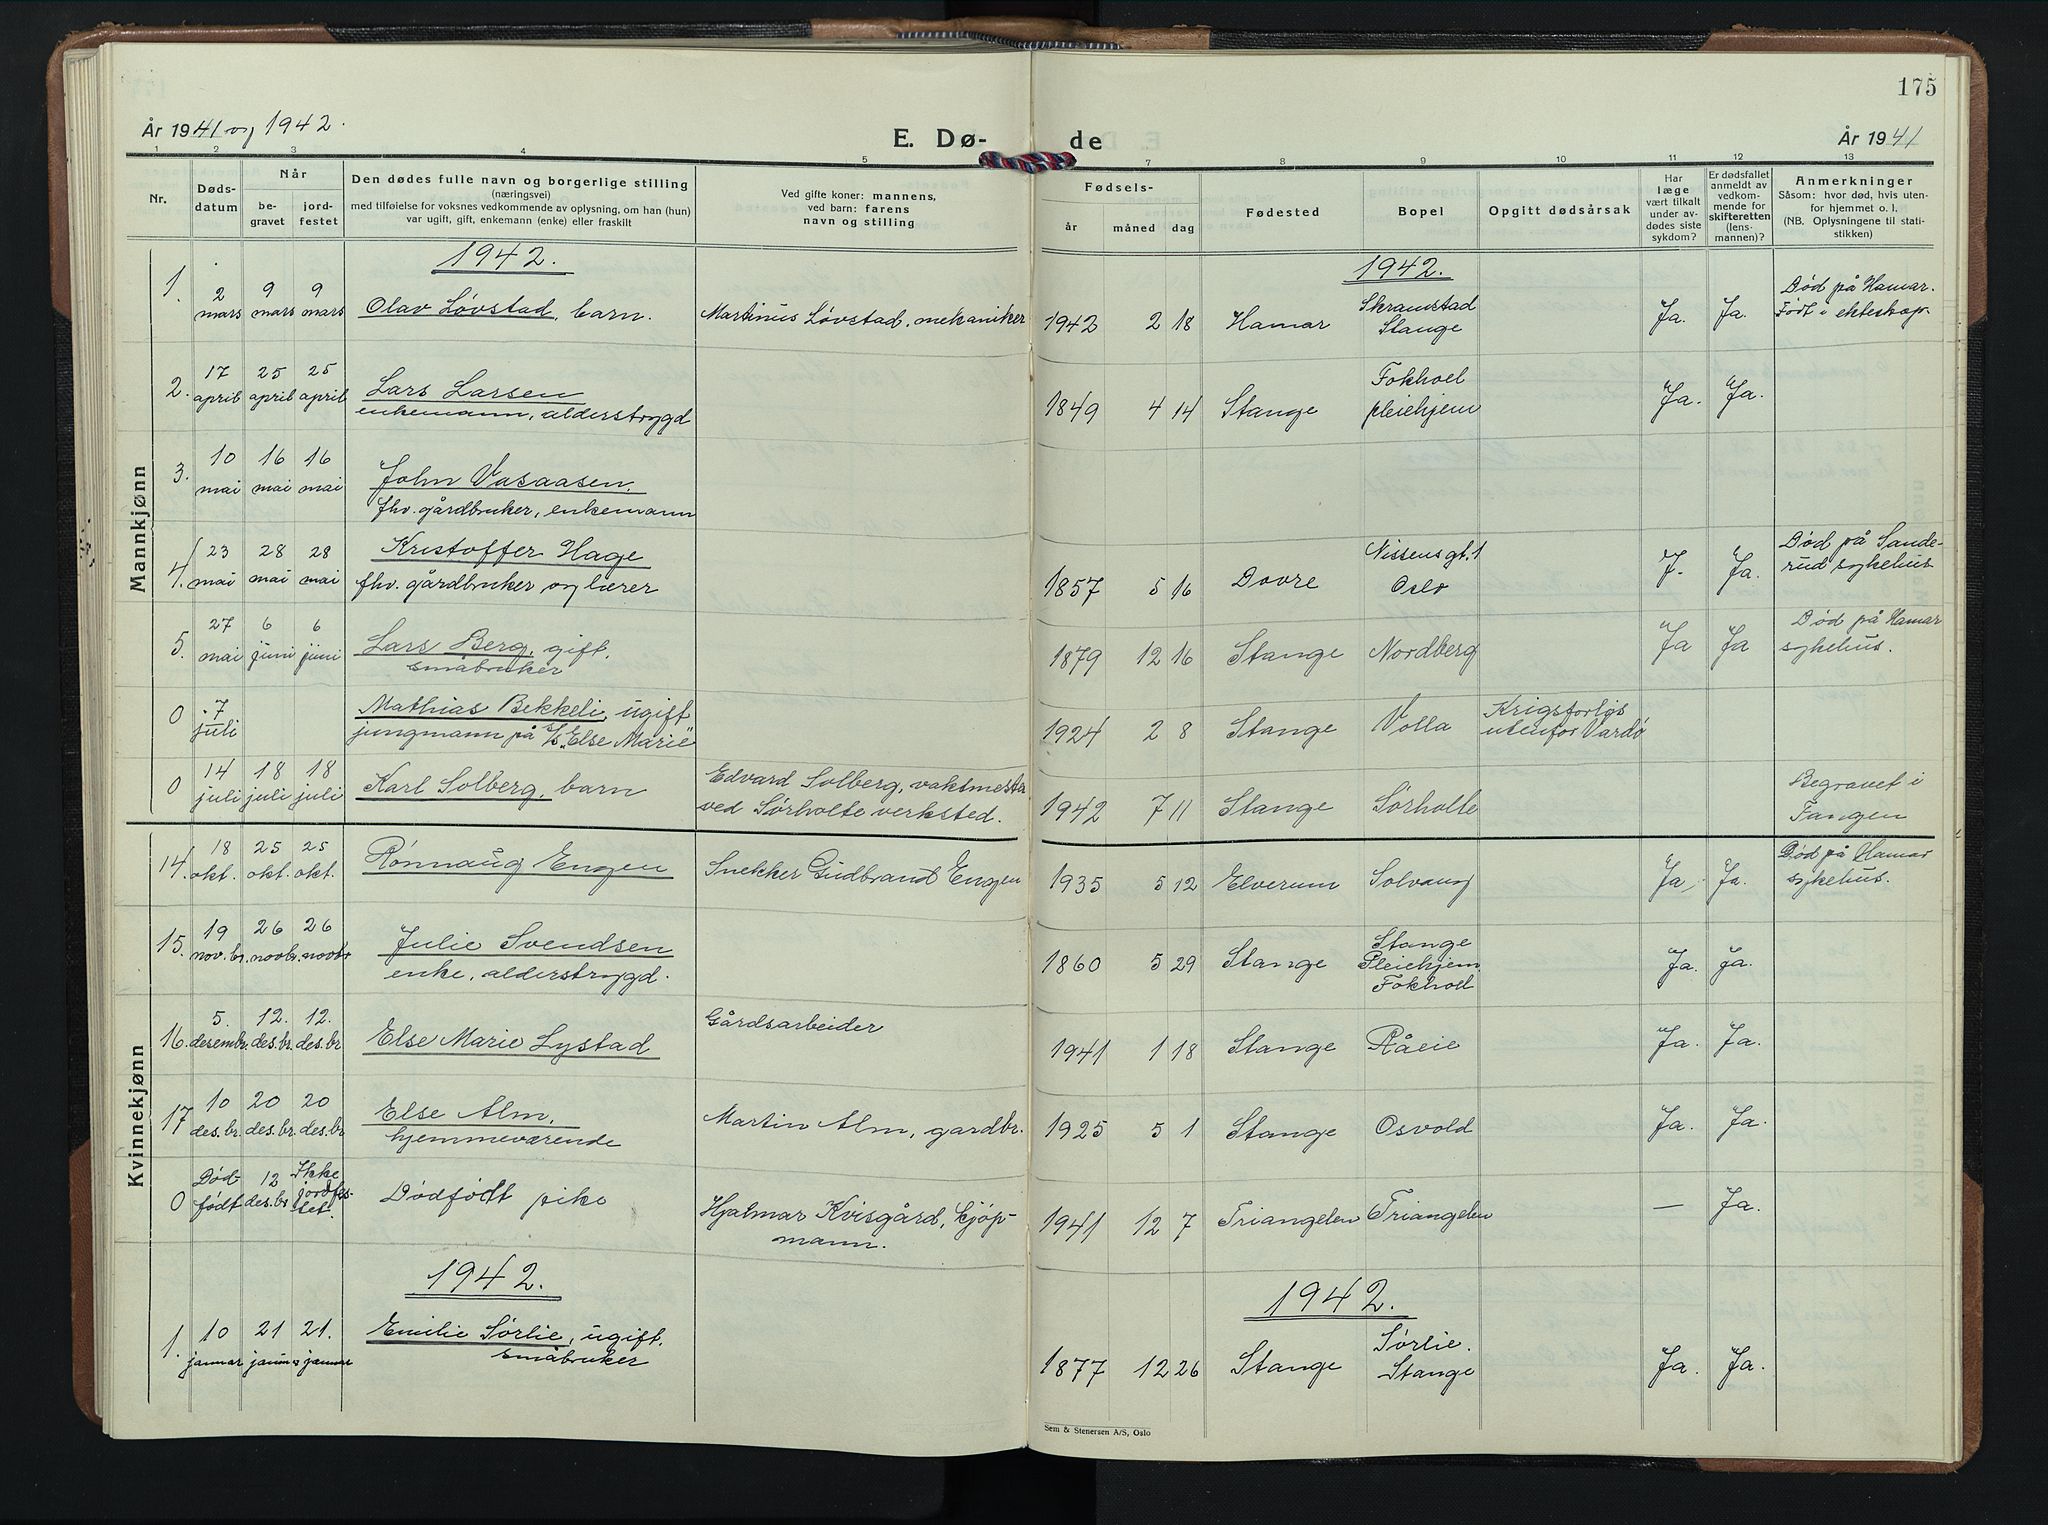 175
År 1941 og 1942.
E. Dø-
de
År 1941
1 2 3 4 5 7 8 9 10 11 12 13
Nr.
Døds-
datum
Når
be-
gravet
jord-
festet
Den dødes fulle navn og borgerlige stilling
(næringsvei)
med tilføielse for voksnes vedkommende av oplysning, om han (hun)
var ugift, gift, enkemann (enke) eller fraskilt
Ved gifte koner: mannens,
ved barn: farens
navn og stilling
Fødsels-
år måned dag
Fødested
Bopel
Opgitt dødsårsak
Har
læge
vært tilkalt
under av-
dødes siste
sykdom?
Er dødsfallet
anmeldt av
vedkom-
mende for
skifteretten
(lens-
mannen)?
Anmerkninger
Såsom: hvor død, hvis uten-
for hjemmet o. l.
(NB. Oplysningene til stati-
stikken)
Mannkjønn
1942.
1942.
1. 2 mars 9 mars 9 mars Olav Løvstad, barn. Martinus Løvstad, mekaniker 1942 2 18 Hamar Skramstad
Stange Ja. Ja. Død på Hamar.
Født i ekteskap.
2. 17 april 25 april 25 april Lars Larsen
enkemann, alderstrygd 1849 4 14 Stange Fokhoel
pleiehjem Ja. Ja.
3. 10 mai 16 mai 16 mai John Vasaasen,
fhv. gårdbruker, enkemann
4. 23 mai 28 mai 28 mai Kristoffer Hage
fhv. gårdbruker og lærer 1857 5 16 Dovre Nissensgt. 1
Oslo J. Ja. Død på Sande-
rud sykehus
5. 27 mai 6 juni 6 juni Lars Berg, gift,
småbruker 1879 12 16 Stange Nordberg Ja Ja Død på Hamar
sykehus.
0 7 juli Mathias Bekkeli, ugift
jungmann på "Else Marie" 1924 2 8 Stange Volla Krigsforlis
utenfor Vardø
0 14 juli 18 juli 18 juli Karl Solberg, barn Edvard Solberg, vaktmester
ved Sørholte verksted. 1942 7 11 Stange Sørholte Begravet i
Tangen
Kvinnekjønn
14. 18 okt. 25 okt. 25 okt. Rønnaug Engen Snekker Gudbrand Engen 1935 5 12 Elverum Solvang Ja, Ja. Død på Hamar
sykehus.
15. 19 nov.br. 26 novbr. 26 novbr Julie Svendsen
enke, alderstrygd. 1860 5 29 Stange Stange
Pleiehjem
Fokhoel Ja. Ja.
16. 5. desembr. 12. des.br. 12. des.br Else Marie Lystad Gårdsarbeider 1941 1 18 Stange Råeie Ja. Ja.
17 10 des.br. 20 des.br. 20 des.br Else Alm,
hjemmeværende Martin Alm, gardbr. 1925 5 1 Stange Osvold Ja. Ja.
0 Død-
født 12 des.br Ikke
jordfes-
tet. Dødfødt pike Hjalmar Kvisgård, kjøp-
mann. 1941 12 7 Triangelen Triangelen — Ja.
1942.
1942.
1. 10 januar 21 januar 21. januar Emilie Sørlie, ugift.
småbruker 1877 12 26 Stange Sørlie.
Stange Ja. Ja.
Sem & Stenersen A/S, Oslo